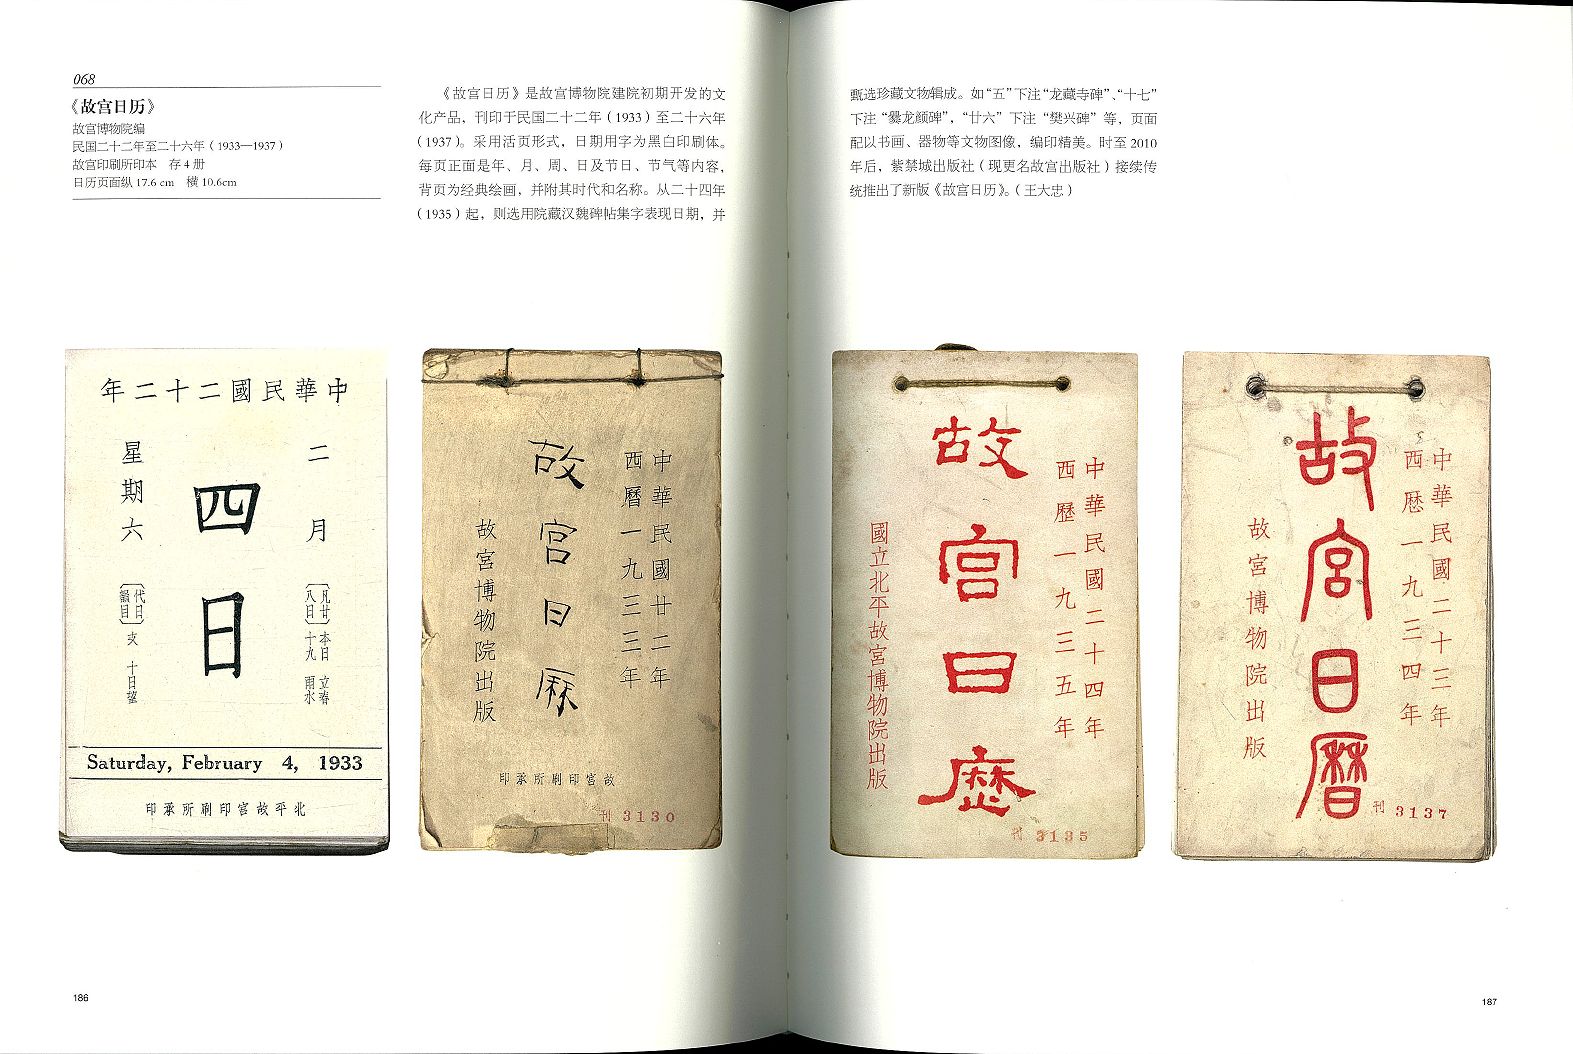 068
《故宫日历》
故宫博物院编
民国二十二年至二十六年（1933—1937）
故宫印刷所印本　存 4 册
日历页面纵 17.6 cm　横 10.6cm
《故宫日历》是故宫博物院建院初期开发的文
化产品，刊印于民国二十二年（1933）至二十六年
（1937）。采用活页形式，日期用字为黑白印刷体。
每页正面是年、月、周、日及节日、节气等内容，
背页为经典绘画，并附其时代和名称。从二十四年
（1935）起，则选用院藏汉魏碑帖集字表现日期，并
甄选珍藏文物辑成。如“五”下注“龙藏寺碑”、“十七”
下注“爨龙颜碑”，“廿六”下注“樊兴碑”等，页面
配以书画、器物等文物图像，编印精美。时至 2010
年后，紫禁城出版社（现更名故宫出版社）接续传
统推出了新版《故宫日历》。（王大忠）
中華民國二十二年
二月
四日
星期六
凡廿八日
本日立春
十九雨水
代日韻目
支
十日望
Saturday, February 4, 1933
北平故宮印刷所承印
中華民國廿二年
西曆一九三三年
故宮日厤
故宮博物院出版
故宮印刷所承印
刊 3130
中華民國二十四年
西歷一九三五年
故宮日歷
國立北平故宮博物院出版
刊 3135
中華民國二十三年
西歷一九三四年
故宮日曆
故宮博物院出版
刊 3137
186
187